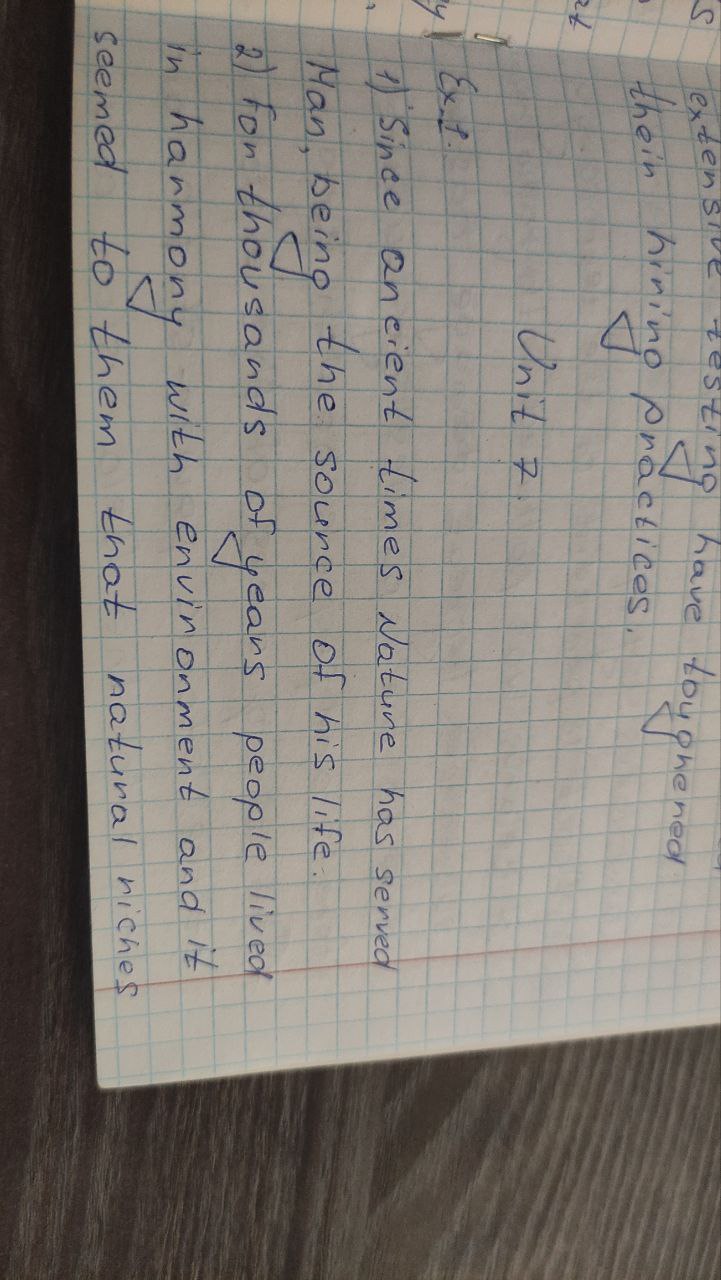 extensive testing have toughened
their hiring practices.
Unit 7.
Ex. 1.
1) Since ancient times Nature has served
Man, being the source of his life.
2) For thousands of years people lived
in harmony with environment and it
seemed to them that natural riches